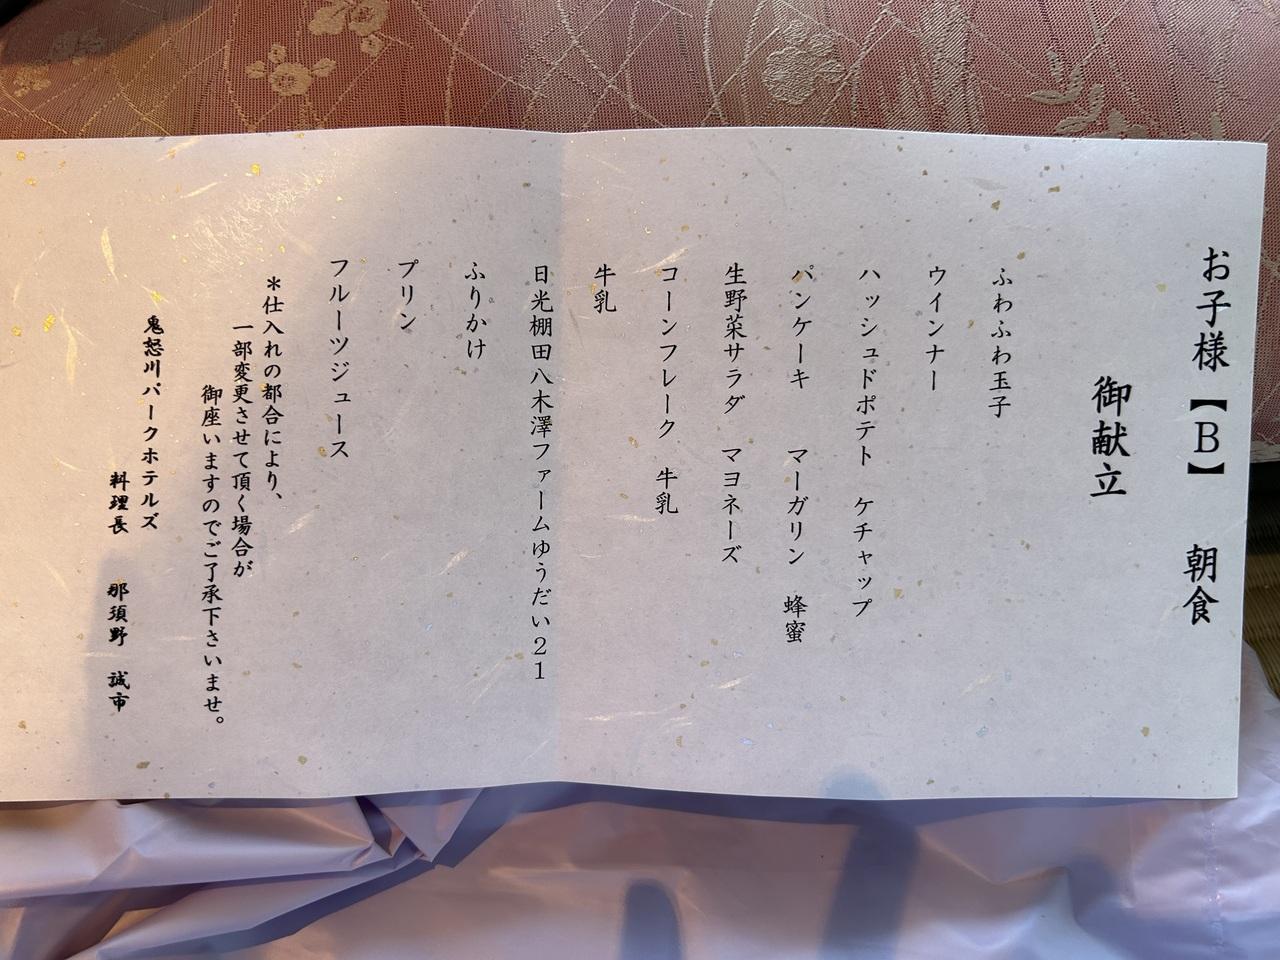 お子様【B】　朝食
御献立
ふわふわ玉子
ウインナー
ハッシュドポテト　ケチャップ
パンケーキ　マーガリン　蜂蜜
生野菜サラダ　マヨネーズ
コーンフレーク　牛乳
牛乳
日光棚田八木澤ファームゆうだい21
ふりかけ
プリン
フルーツジュース
＊仕入れの都合により、
一部変更させて頂く場合が
御座いますのでご了承下さいませ。
鬼怒川パークホテルズ
料理長　那須野　誠市